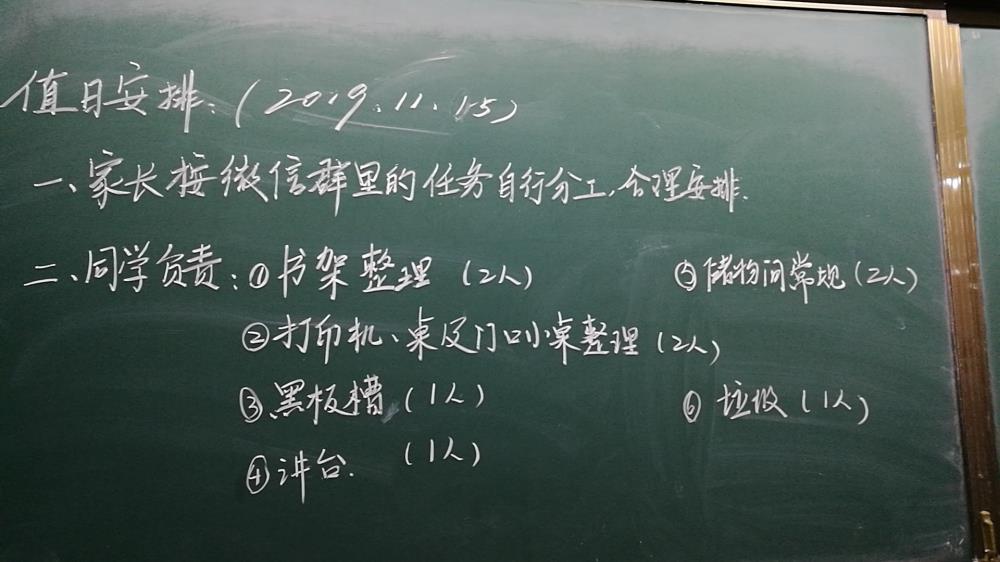 值日安排:(2019.11.15)
一、家长按微信群里的任务自行分工,合理安排.
二、同学负责:①书架整理(2人) ⑤储物间常规(2人)
②打印机、桌及门口小桌整理(2人)
③黑板槽(1人) ⑥垃圾(1人)
④讲台.(1人)